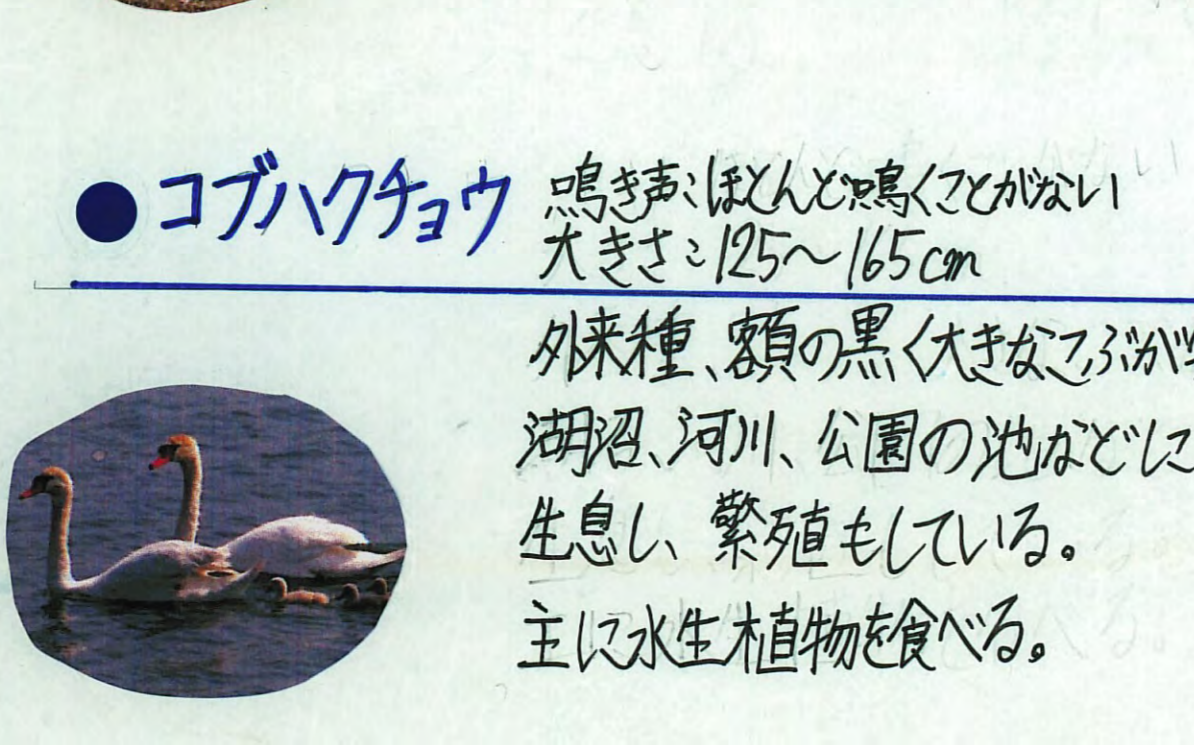 ●コブハクチョウ
鳴き声:ほとんど鳴くことがない
大きさ:125〜165cm
外来種、額の黒く大きなこぶが
湖沼、河川、公園の池などに
生息し、繁殖もしている。
主に水生植物を食べる。